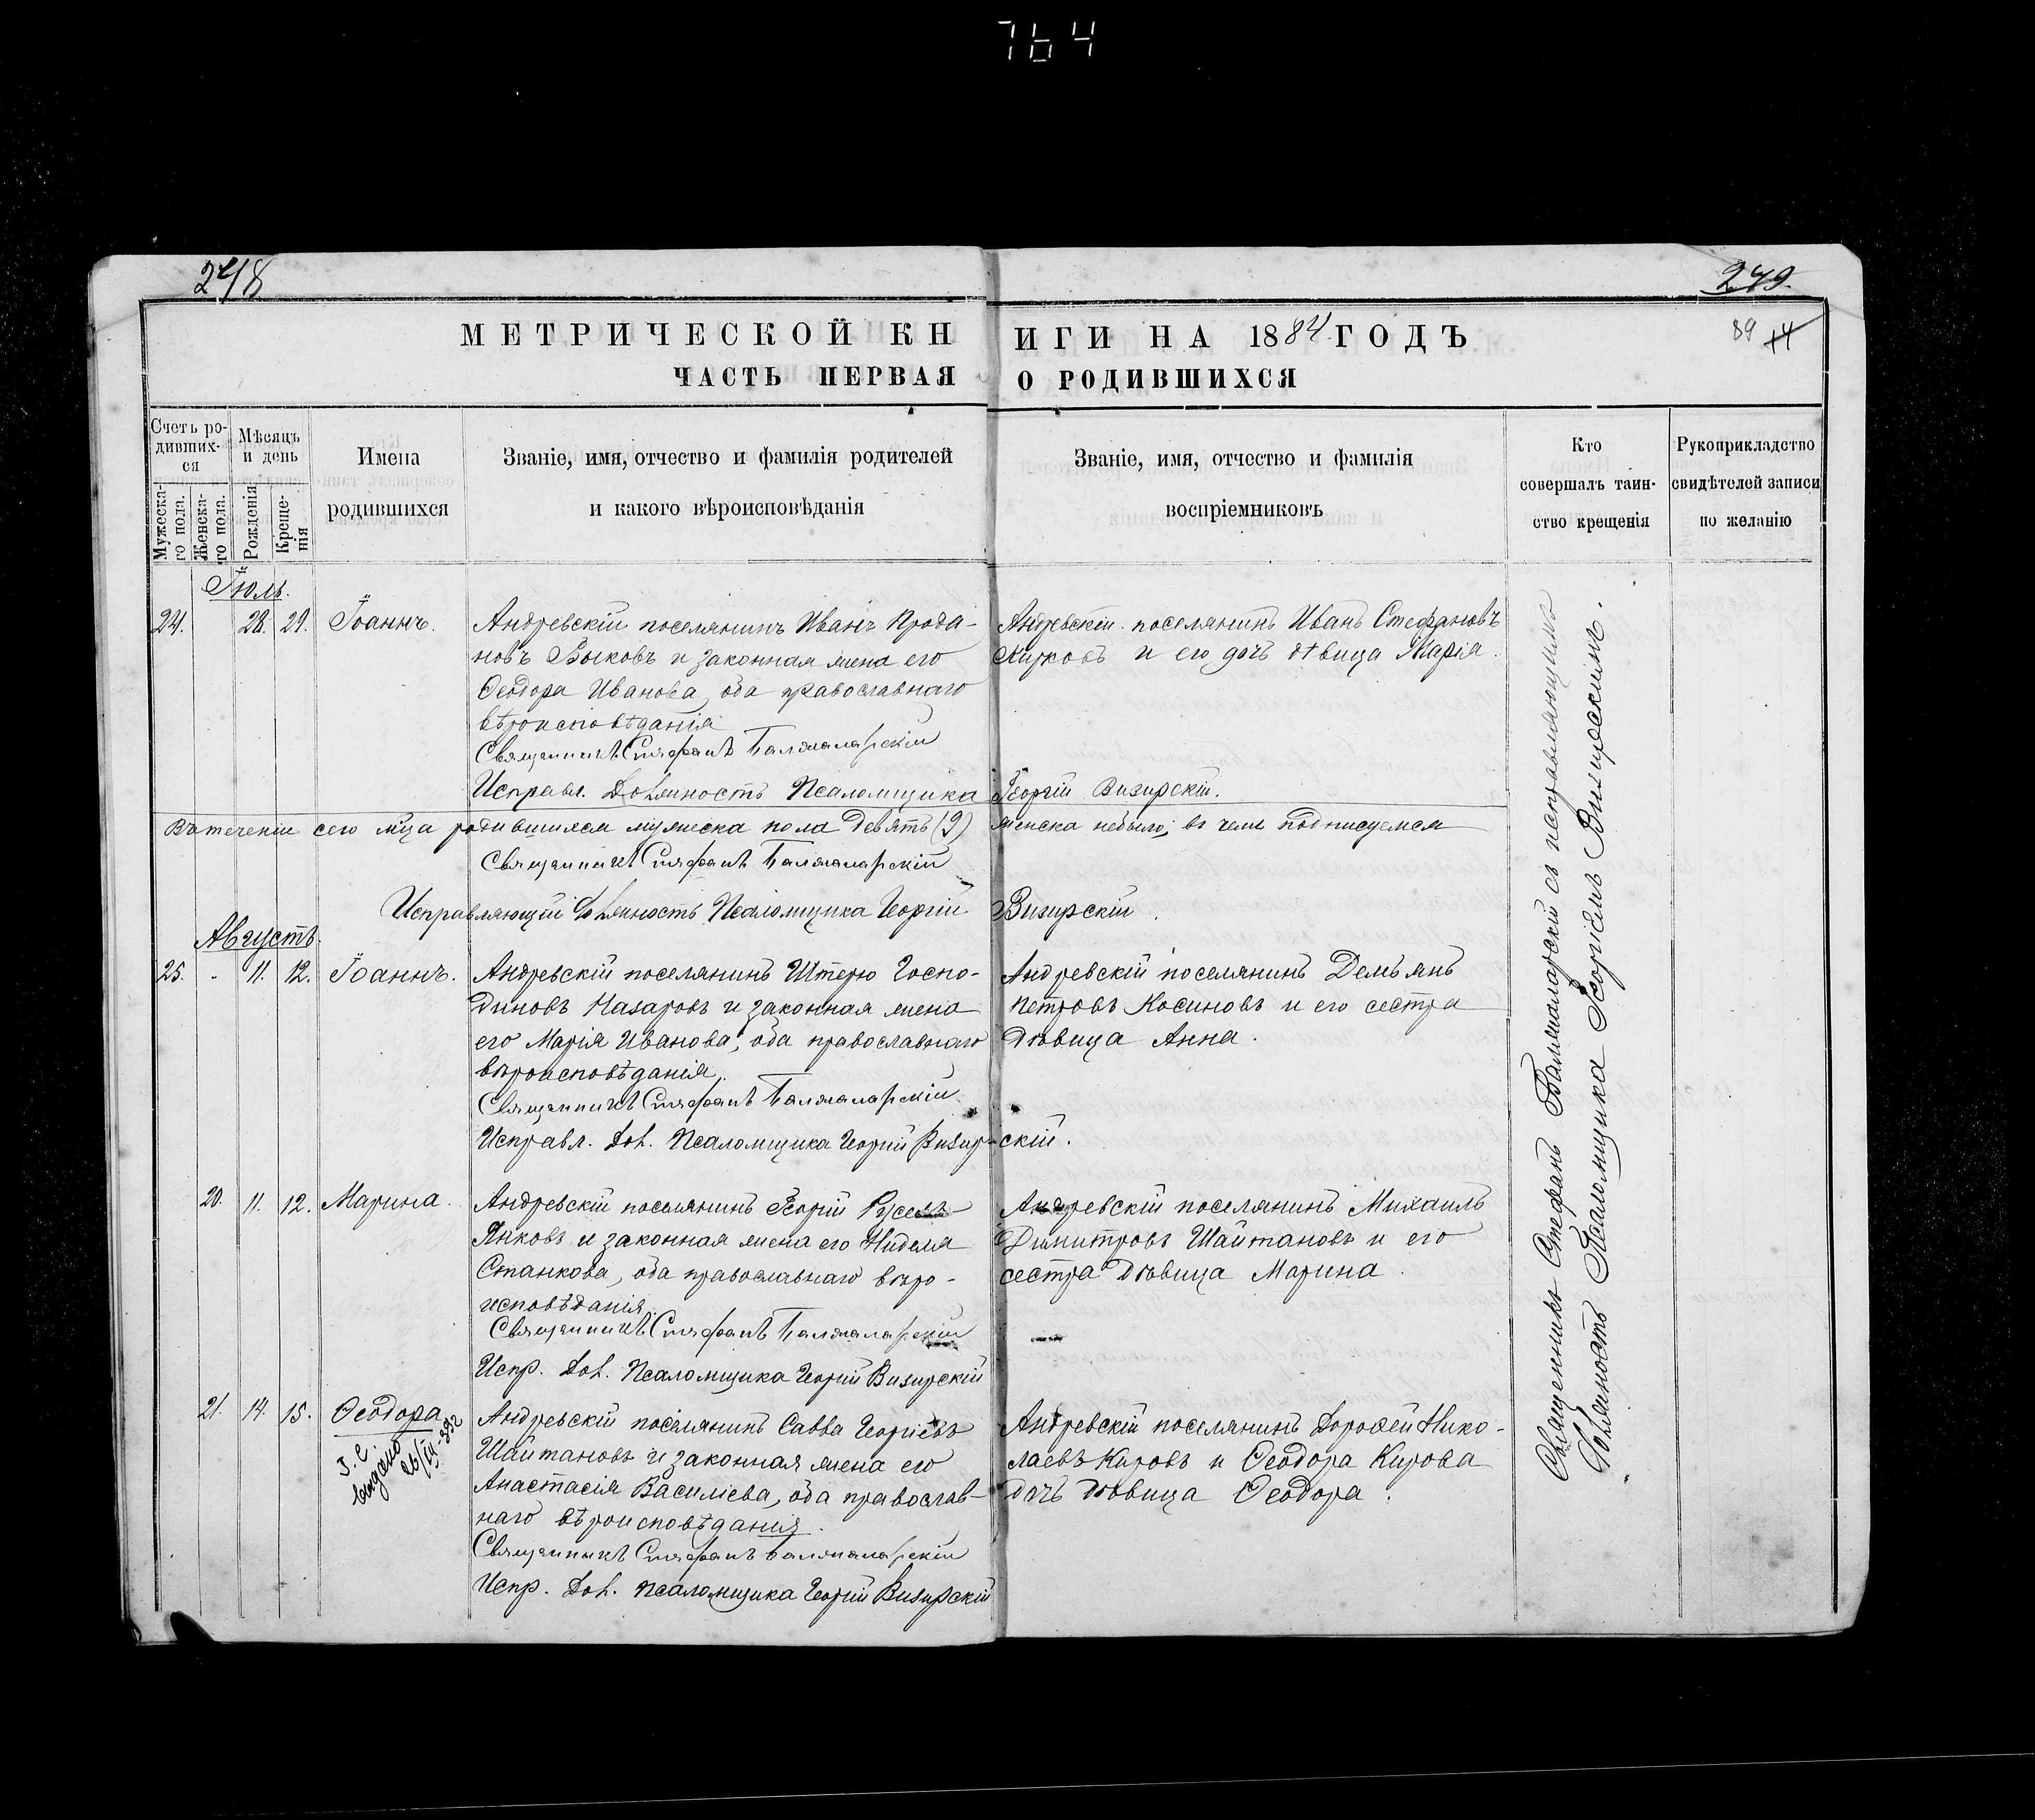 764
248
249.
МЕТРИЧЕСКОЙ КНИГИ НА 1884 ГОДЪ
89 14
ЧАСТЬ ПЕРВАЯ О РОДИВШИХСЯ
Счетъ ро-
дивших-
ся
Мужеска-
го пола.
Женска-
го пола.
Мѣсяцъ
и день
Рожденія
Креще-
нія
Имена
родившихся
Званіе, имя, отчество и фамилія родителей
и какого вѣроисповѣданія
Званіе, имя, отчество и фамилія
воспріемниковъ
Кто
совершалъ таин-
ство крещенія
Рукоприкладство
свидѣтелей записи
по желанію
Іюль.
24. 28. 29. Іоаннъ.
Андревскій поселянинъ Иванъ Прода-
новъ Быковъ и законная жена его
Ѳеодора Иванова, оба православнаго
вѣроисповѣданія
Священникъ Стефанъ Балжаларскій
Исправл. Должность Псаломщика Георгій Визирскій.
Андревскій поселянинъ Иванъ Стефановъ
Кирковъ и его дочь дѣвица Марія.
Въ теченіи сего м-ца родившихся мужеска пола Девять (9) женска небыло; въ чемъ подписуемся
Священникъ Стефанъ Балжаларскій
Исправляющій Должность Псаломщика Георгій Визирскій.
Августъ.
25. - 11. 12. Іоаннъ.
Андревскій поселянинъ Штерю Госпо-
диновъ Назаровъ и законная жена
его Марія Иванова, оба православнаго
вѣроисповѣданія.
Священникъ Стефанъ Балжаларскій
Исправл. Дол. Псаломщика Георгій Визир-скій.
Андревскій поселянинъ Демьянъ
Петровъ Косиновъ и его сестра
Дѣвица Анна.
20. 11. 12. Марина.
Андревскій поселянинъ Георгій Русевъ
Янковъ и законная жена его Ниделя
Станкова, оба православнаго вѣро-
исповѣданія.
Священникъ Стефанъ Балжаларскій
Испр. Дол. Псаломщика Георгій Визирскій
Андревскій поселянинъ Михаилъ
Димитровъ Шайтановъ и его
сестра Дѣвица Марина.
21. 14. 15. Ѳеодора
Андревскій поселянинъ Савва Георгіевъ
Шайтановъ и законная жена его
Анастасія Василіева, оба православ-
наго вѣроисповѣданія.
Священникъ Стефанъ Балжаларскій
Испр. Дол. Псаломщика Георгій Визирскій
Андревскій поселянинъ Дорофей Нико-
лаевъ Кировъ и Ѳеодора Кирова
дочь дѣвица Ѳеодора.
Священникъ Стефанъ Балжаларскій съ исправляющимъ
Должность Псаломщика Георгіемъ Визирскимъ.